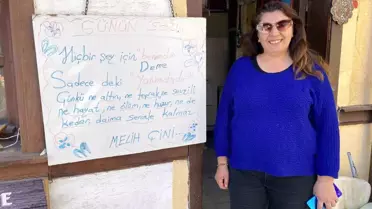 GÜNÜN
Hiçbir şey için "benimdir"
Deme
Sadece de ki "Yanımdadır"
Çünkü ne altın, ne toprak, ne sevgili
ne hayat, ne ölüm, ne huzur, ne de
keder daima seninle kalmaz.
MELİH ÇİNİ
E